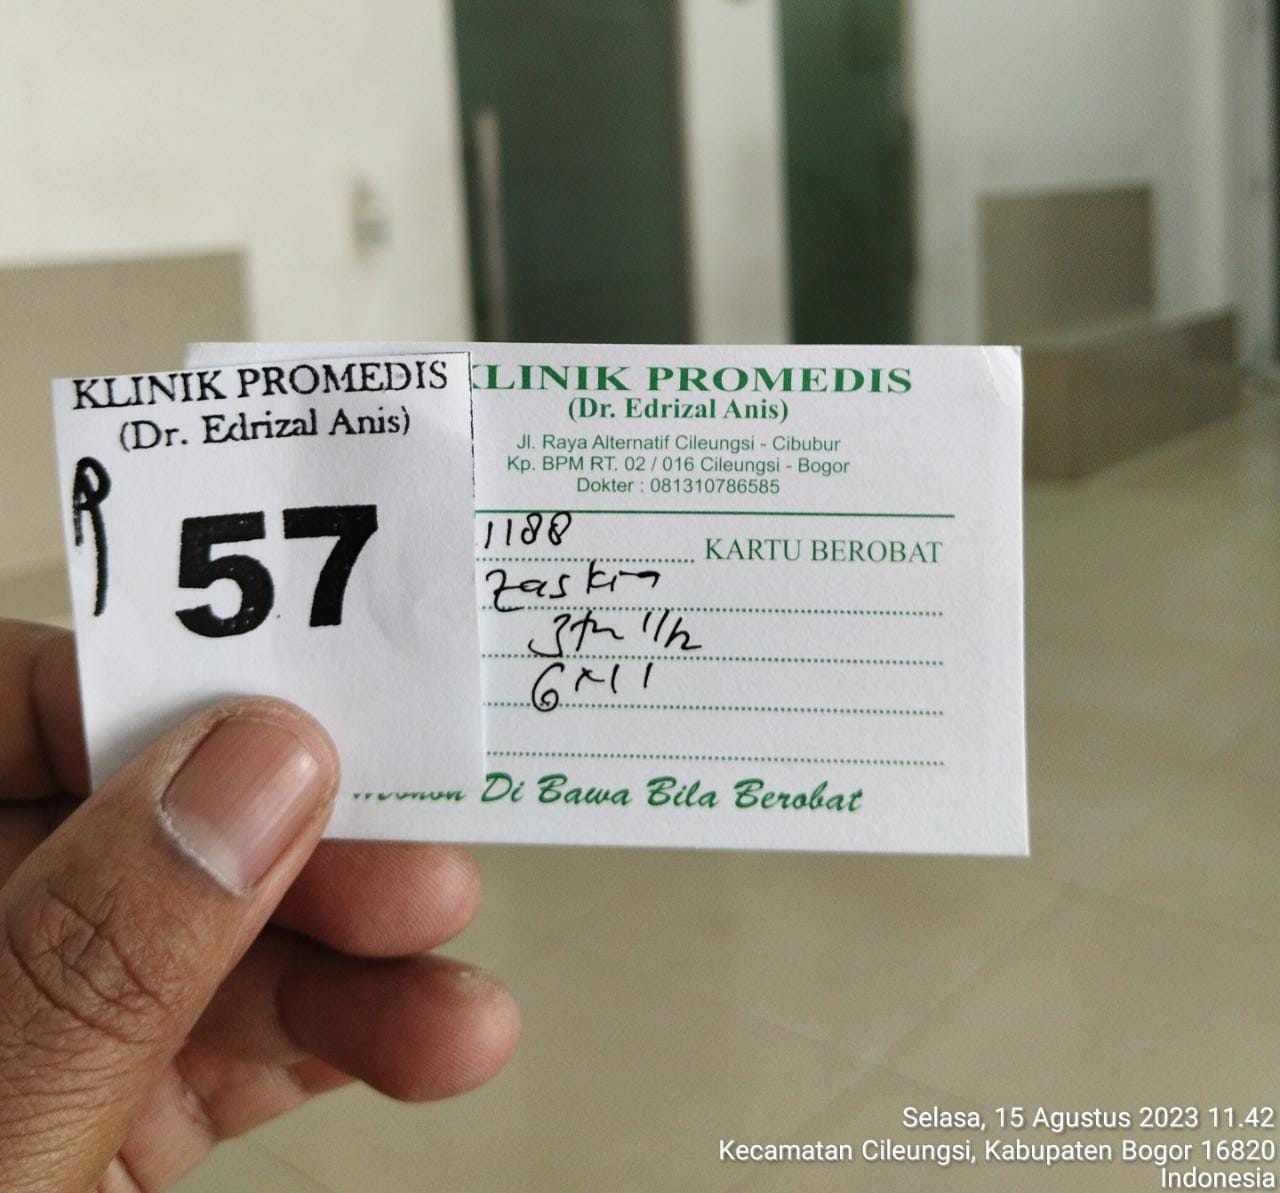 KLINIK PROMEDIS
(Dr. Edrizal Anis)
57
KLINIK PROMEDIS
(Dr. Edrizal Anis)
Jl. Raya Alternatif Cileungsi - Cibubur
Kp. BPM RT. 02 / 016 Cileungsi - Bogor
Dokter : 081310786585
1188
KARTU BEROBAT
Di Bawa Bila Berobat
Selasa, 15 Agustus 2023 11.42
Kecamatan Cileungsi, Kabupaten Bogor 16820
Indonesia